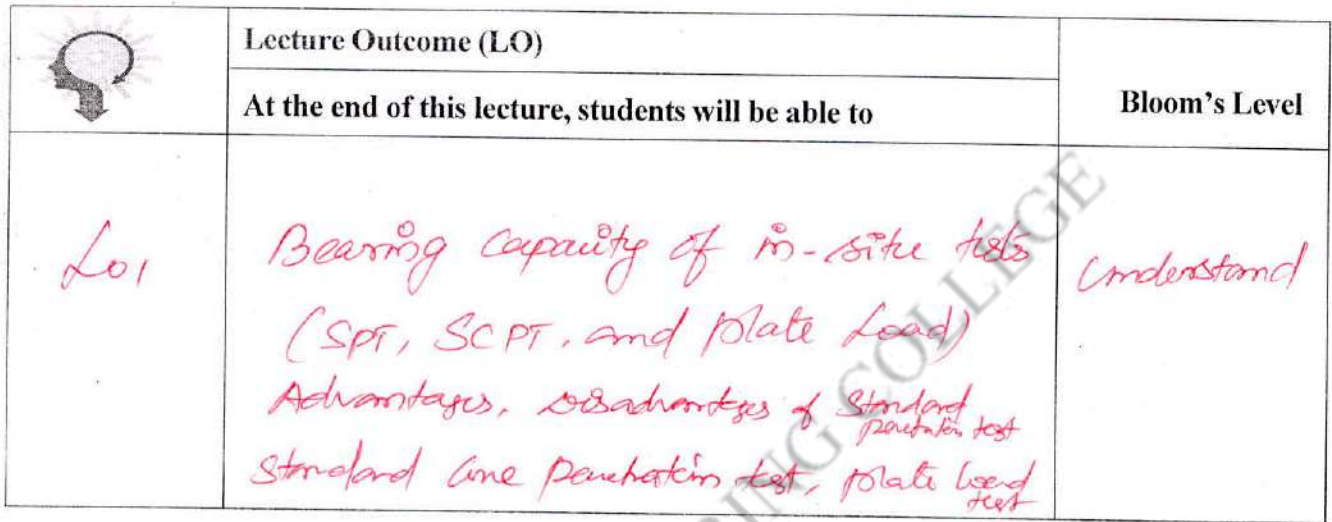 Lecture Outcome (LO)
At the end of this lecture, students will be able to
Bloom's Level
LO1
Bearing Capacity of in-situ tests
Understand
(SPT, SCPT, and plate Load)
Advantages, Disadvantages of Standard
penetration test
Standard Cone penetration test, plate load
test
ING COLLEGE